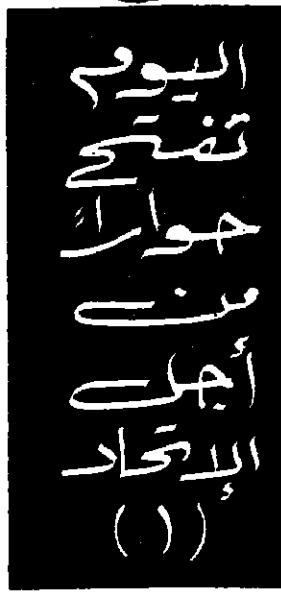 اليوم
تفتح
حواراً
من
أجل
الإتحاد
(١)